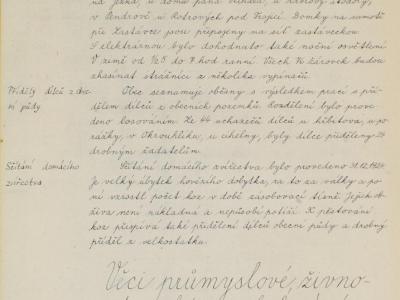 na Jezna, u domu pana Vlčka, u Kávovy stodoly,
v Pendrově u Kotrových pod Trojicí. Domky na samotě
při Zastávce jsou připojeny na síť zastaveckou.
S elektrárnou bylo dohodnuto také noční osvětlení
v zimě od ½5 do 7 hod ranní. Všech 16 žárovek budou
zhasínat strážníci z několika vypínačů.
Příděly dílců z obec-
ní půdy
Obec seznamuje občany s výsledkem prací s pří-
dělem dílců z obecních pozemků. Rozdělení bylo prove-
deno losováním. Ze 44 uchazečů dílců u hřbitova, u po
rážky, v Okrouhlíku, u cihelny, byly dílce přiděleny 28
drobným žadatelům.
Sčítání domácího
zvířectva
Sčítání domácího zvířectva bylo provedeno 31.12.1924.
Je velký úbytek hovězího dobytka, za to za války a po
ní vzrostl počet koz v době zásobovací tísně. Jejich ob-
živa není nákladná a nepůsobí potíží. K pěstování
koz přispívá také přidělení dílců obecní půdy a drobný
příděl z velkostatku.
Věci průmyslové, živno-